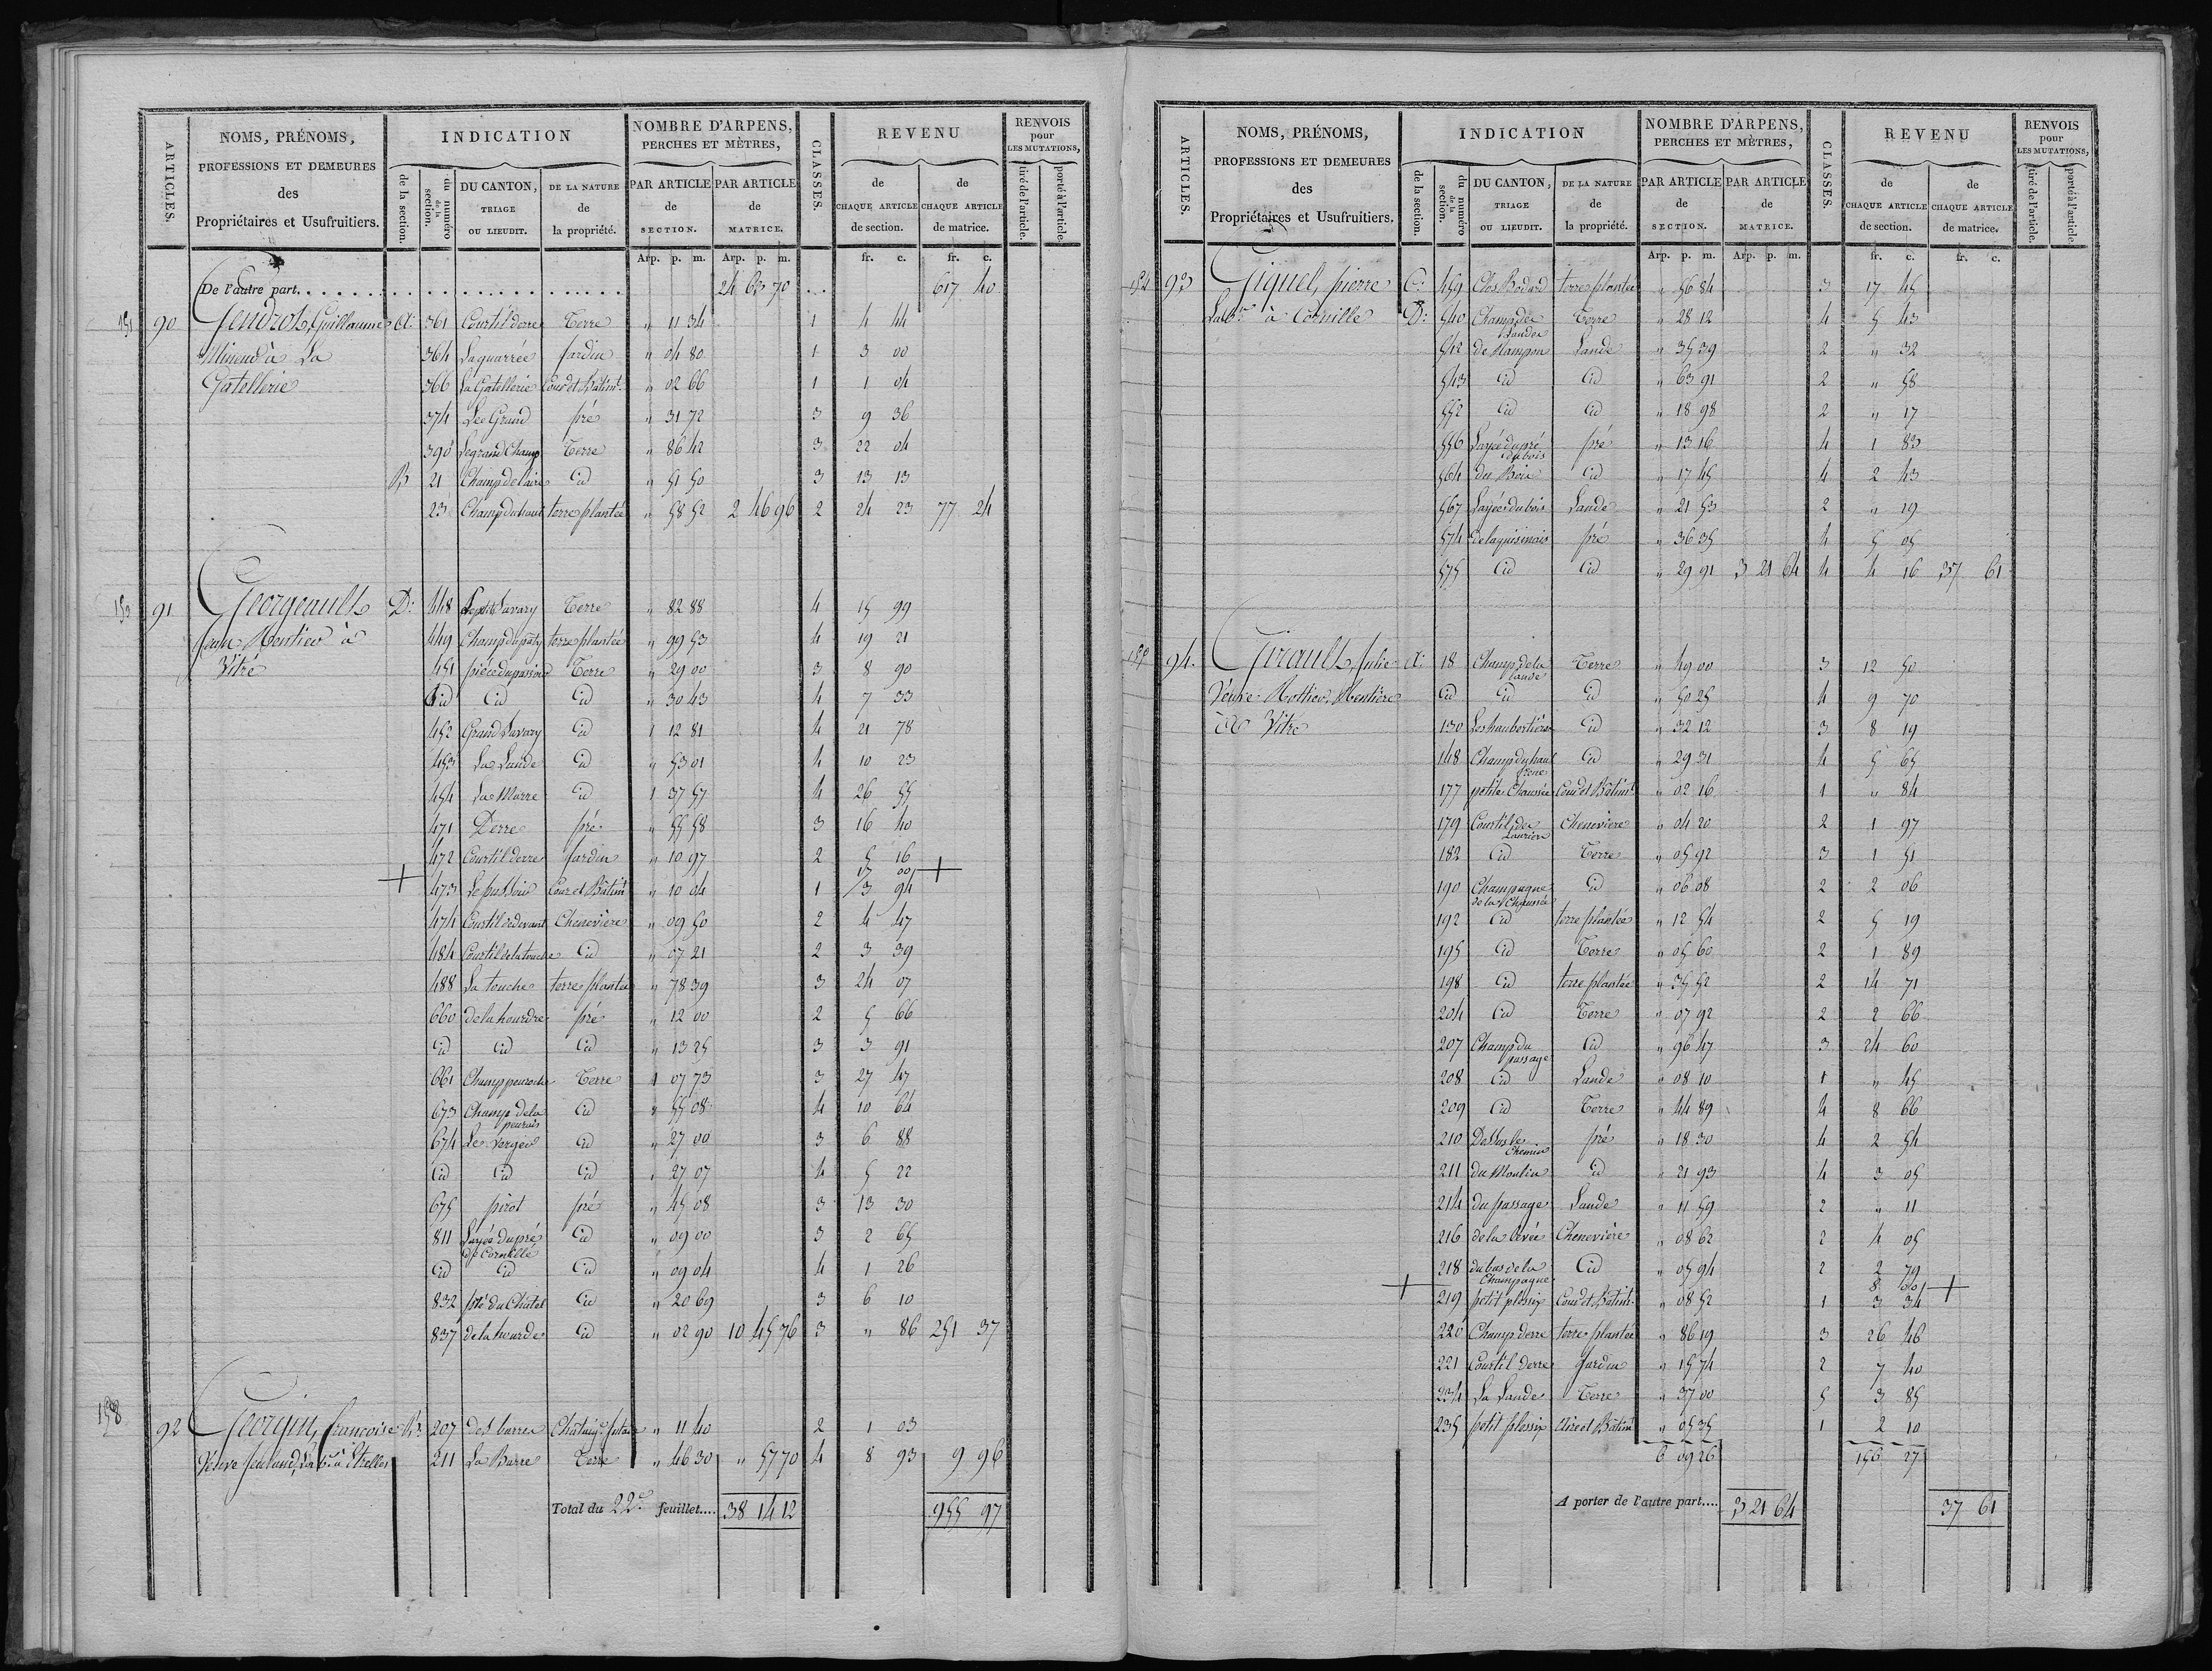 ARTICLES.
NOMS, PRÉNOMS,
PROFESSIONS ET DEMEURES
des
Propriétaires et Usufruitiers.
INDICATION
de la section.
du numéro de la section.
DU CANTON, TRIAGE OU LIEUDIT.
DE LA NATURE de la propriété.
NOMBRE D'ARPENS, PERCHES ET MÈTRES,
PAR ARTICLE de SECTION.
PAR ARTICLE de MATRICE.
CLASSES.
REVENU
de CHAQUE ARTICLE de section.
de CHAQUE ARTICLE de matrice.
RENVOIS pour LES MUTATIONS,
tiré de l'article.
porté à l'article.
Arp. p. m. Arp. p. m. fr. c. fr. c.
De l'autre part 24 63 70 617 40
151 90 Gendrot, Guillaume A: 361 Courtil derre Terre " 11 34 1 4 44
Mineur à La 364 La quarrée Jardin " 04 80 1 3 00
Gatellerie 366 La Gatellerie Cour et Bâtimt. " 02 66 1 1 04
374 Le Grand pré " 31 72 3 9 36
390 Le grand Champ Terre " 86 42 3 22 04
B 21 Champ de l'aire id " 51 50 3 13 13
23 Champ du haut terre plantée " 58 52 2 46 96 2 24 23 77 24
153 91 Georgeault D: 448 Le petit Savary Terre " 82 88 4 15 99
Jean Rentier à 449 Champ du paty terre plantée " 99 53 4 19 21
Vitré 451 pièce du Terre " 29 00 3 8 90
id id id " 30 43 4 7 33
452 Grand Savary id 1 12 81 4 21 78
453 La Lande id " 53 01 4 10 23
454 La Marre id 1 37 57 4 26 55
471 Derre pré " 55 58 3 16 40
472 Courtil derre Jardin " 10 97 2 5 16
15 00
+ 473 Cour et Bâtimt " 10 04 1 3 94 +
474 Courtil de devant Chenevière " 09 50 2 4 47
484 Courtil de la touche id " 07 21 2 3 39
488 La touche terre plantée " 78 39 3 24 07
660 de la hourdre pré " 12 00 2 5 66
id id id " 13 25 3 3 91
661 Champ Terre 1 07 73 3 27 47
673 Champ de la id " 55 08 4 10 64
674 Le verger id " 27 00 3 6 88
id id id " 27 07 4 5 22
675 pirot pré " 45 08 3 13 30
811 Layée du pré de Cornillé id " 09 00 3 2 65
id id id " 09 04 4 1 26
832 pré du Châtel id " 20 69 3 6 10
837 de la hourde id " 02 90 10 45 76 3 " 86 251 37
158 92 Georgin, francoise B: 207 des barres Châtaigr. futaie " 11 40 2 1 03
Veuve 211 La Barre Terre " 46 30 " 57 70 4 8 93 9 96
Total du 22e. feuillet.... 38 14 12 955 97
ARTICLES.
NOMS, PRÉNOMS,
PROFESSIONS ET DEMEURES
des
Propriétaires et Usufruitiers.
INDICATION
de la section.
du numéro de la section.
DU CANTON, TRIAGE OU LIEUDIT.
DE LA NATURE de la propriété.
NOMBRE D'ARPENS, PERCHES ET MÈTRES,
PAR ARTICLE de SECTION.
PAR ARTICLE de MATRICE.
CLASSES.
REVENU
de CHAQUE ARTICLE de section.
de CHAQUE ARTICLE de matrice.
RENVOIS pour LES MUTATIONS,
tiré de l'article.
porté à l'article.
Arp. p. m. Arp. p. m. fr. c. fr. c.
154 93 Giquel, pierre C: 459 Clos Bodard terre plantée " 56 84 3 17 45
Labr. à Cornillé D: 540 Champ des Landes Terre " 28 12 4 5 43
542 de Lande " 35 39 2 " 32
543 id id " 63 91 2 " 58
552 id id " 18 98 2 " 17
556 Layée du pré du bois pré " 13 16 4 1 83
564 du Bois id " 17 45 4 2 43
567 Layée du bois Lande " 21 53 2 " 19
574 pré " 36 35 4 5 05
575 id id " 29 91 3 21 64 4 4 16 37 61
94. Girault, Julie A: 18 Champ de la lande Terre " 49 00 3 12 50
Veuve Rentière id id id " 50 25 4 9 70
à Vitré 130 id " 32 12 3 8 19
148 Champ du haut id " 29 31 4 5 65
177 petite Chaussée Cour et Bâtimt " 02 16 1 " 84
179 Courtil des Lauriers Chenevière " 04 20 2 1 97
182 id Terre " 05 92 3 1 51
190 Champagne de la Chaussée id " 06 08 2 2 06
192 id terre plantée " 12 54 2 5 19
195 id Terre " 05 60 2 1 89
198 id terre plantée " 35 52 2 14 71
204 id Terre " 07 92 2 2 66
207 Champ du passage id " 96 47 3 24 60
208 id Lande " 08 10 1 " 45
209 id Terre " 44 89 4 8 66
210 Dessus le Chemin pré " 18 30 4 2 54
211 du Moulin id " 21 93 4 3 05
214 du passage Lande " 11 59 2 " 11
216 Chenevière " 08 62 2 4 05
218 du bas de la Champagne id " 05 94 2 2 79
8 00
+ 219 petit plessix Cour et Bâtimt. " 08 52 1 3 34 +
220 Champ derre terre plantée " 86 19 3 26 46
221 Courtil derre Jardin " 15 74 2 7 40
234 La Lande Terre " 37 00 5 3 85
235 petit plessix Aire et Bâtimt " 05 35 1 2 10
6 09 26 156 27
A porter de l'autre part.... 3 21 64 37 61